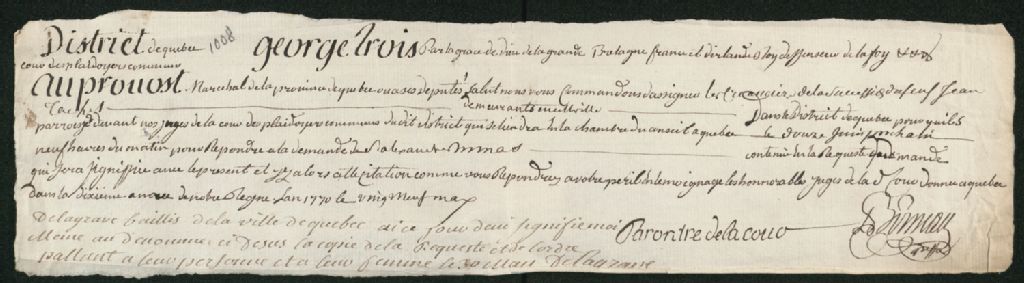 District de quebec 1008 george trois Par la grace de dieu de la grande Bretagne france et dirlande Roy deffenseur de la foy &&&
cour des plaidoyers communs
au prouost Marechal de la province de quebec ou a ses deputés Salut nous vous Commandons dassigner les Creanciers de la Succession de feu Jean
Taché demeurants en cette ville Dans le District de quebec pour quils
paroissent devant nos juges de la cour de plaidoyers communs du dit district qui se tiendra en la chambre du conseil a quebec le douze Juin prochain
neuf heures du matin pour Repondre a la demande de contenue en la Requeste Demande
qui sera signiffiée avec le present et alors a la Citation comme vous Repondrez a votre peril En temoignage les honnorables Juges de la de Cour donne a quebec
dans la dixieme année de notre Regne Lan 1770 le vingt neuf may
Delagrave baillif de la ville de quebec ai ce jour dui signifie moi
Meme au denomme ci desus la copie de la Requeste et de lordre Par ordre de la cour
parlant a leur personne et a leur femme le 30 Mai Delagrave